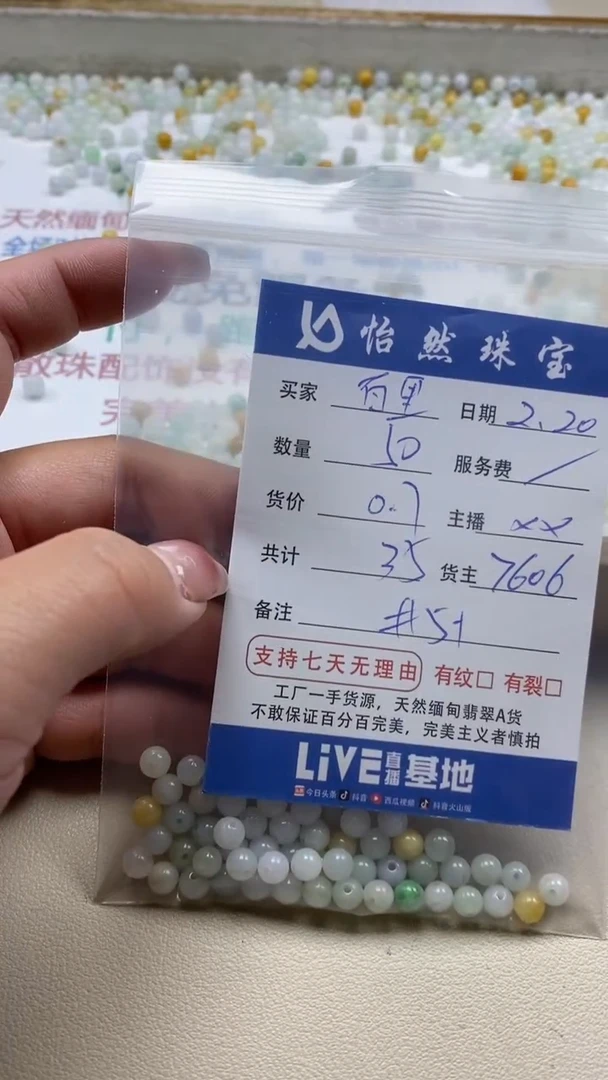 天然缅甸
全场
散珠配
完
怡然珠宝
买家 百里 日期 2.20
数量 50 服务费 /
货价 0.7 主播 xx
共计 35 货主 7606
备注 #51
支持七天无理由 有纹□ 有裂□
工厂一手货源，天然缅甸翡翠A货
不敢保证百分百完美，完美主义者慎拍
LiVE直播基地
今日头条 抖音 西瓜视频 抖音火山版